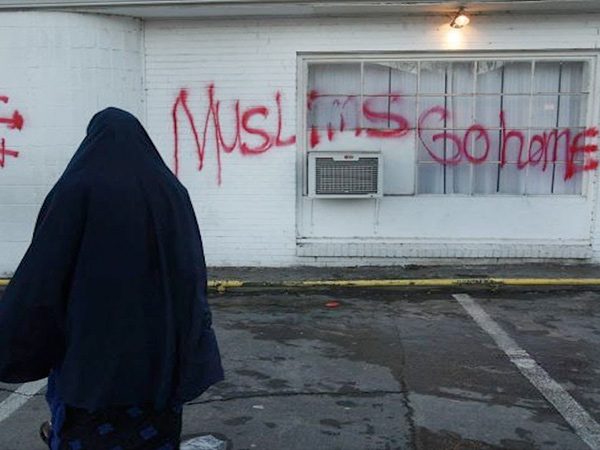 Muslims Go home